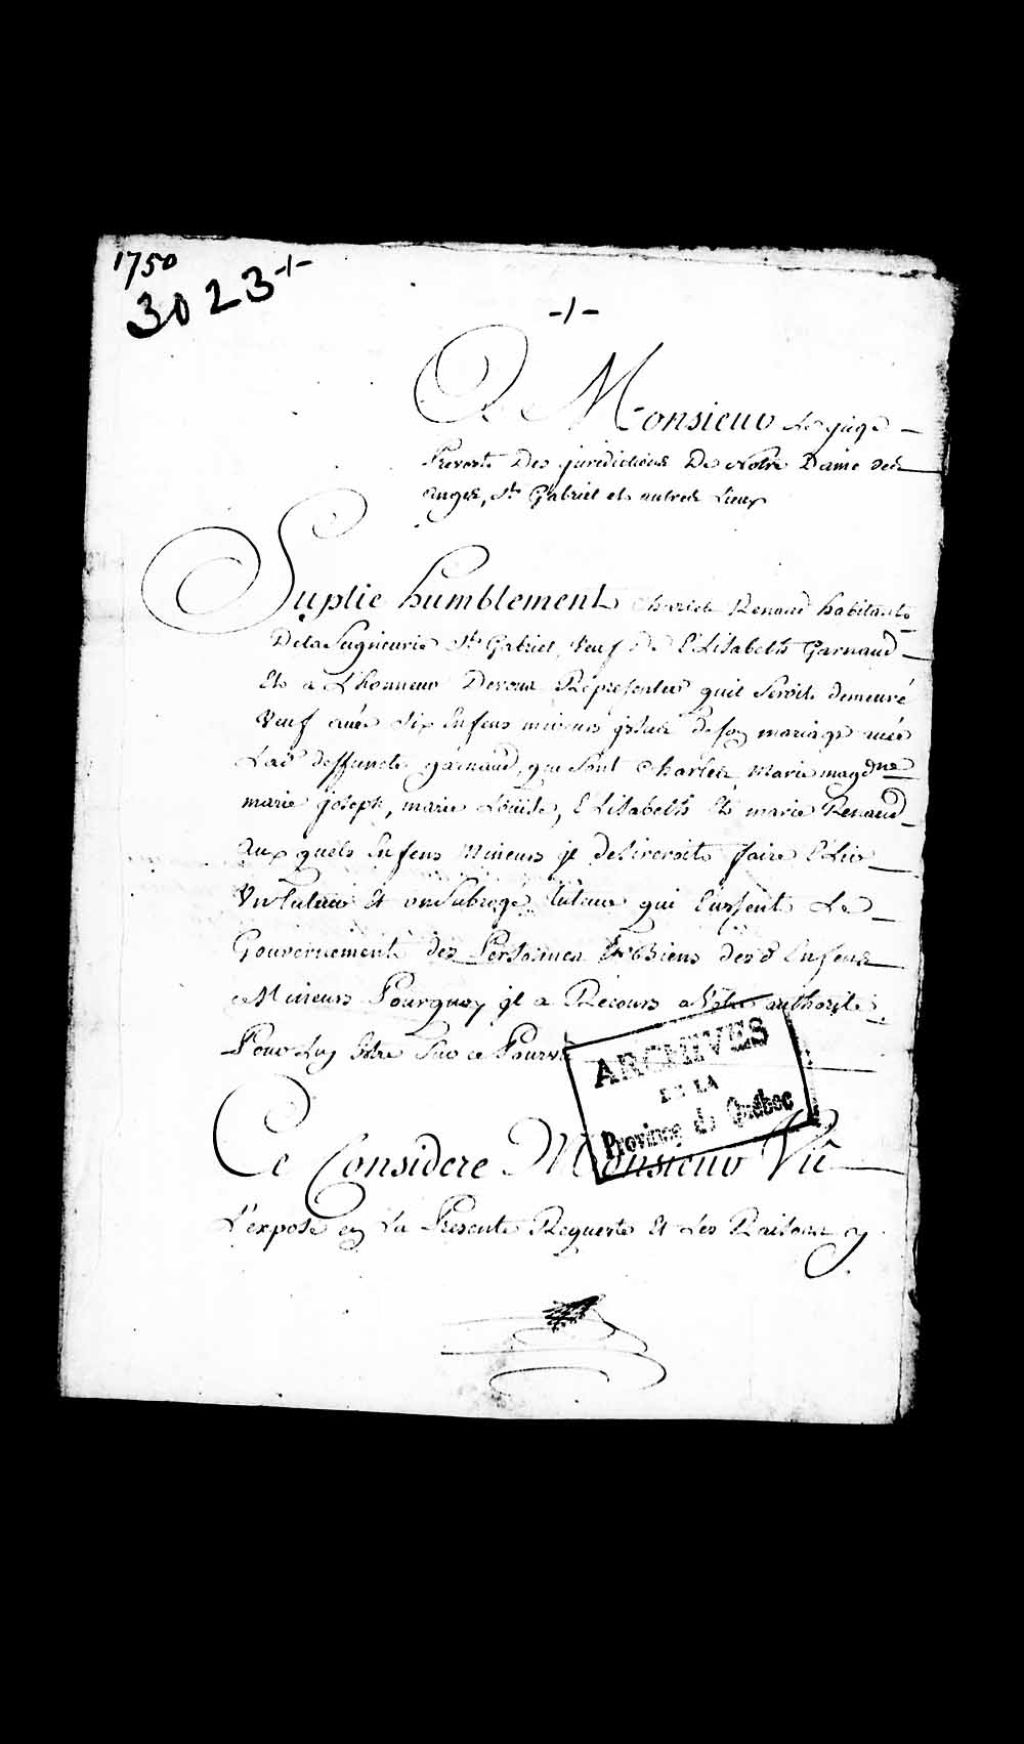 1750
3023 -/-
-/-
A Monsieur Le juge
Prevost Des jurisdictions De Notre Dame des
anges, St Gabriel et autres Lieux
Suplie humblement Charles Renaud habitant
De la Seigneurie St Gabriel, Veuf De Elisabeth Garnaud
Et a L'honneur De vous Representer quil Seroit demeuré
Veuf avec Six Enfens mineurs issus de son mariage avec
Lad deffuncte garnaud, que Sont Charles, Marie magdne
marie joseph, marie Louise, Elisabeth Et marie Renaud
Aux quels Enfens Mineurs il desireroit faire Elire
Un Tuteur Et un Subrogé tuteur qui Eussent Le
Gouvernement des Personnes Et Biens desd Enfens
Mineurs Pourquoy il a Recours a Votre authorité
Pour Luy Estre Sur ce Pourvû
ARCHIVES
DE LA
Province de Québec
Ce Consideré Monsieur Vû
L'exposé en La Presente Requeste Et Les Raisons y